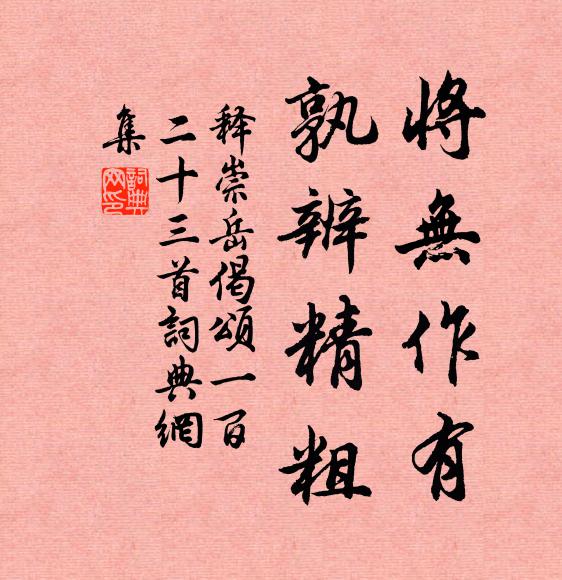 將無作有
孰辨精粗
釋崇岳偈頌一百
二十三首詞典網
集
詞典
网印